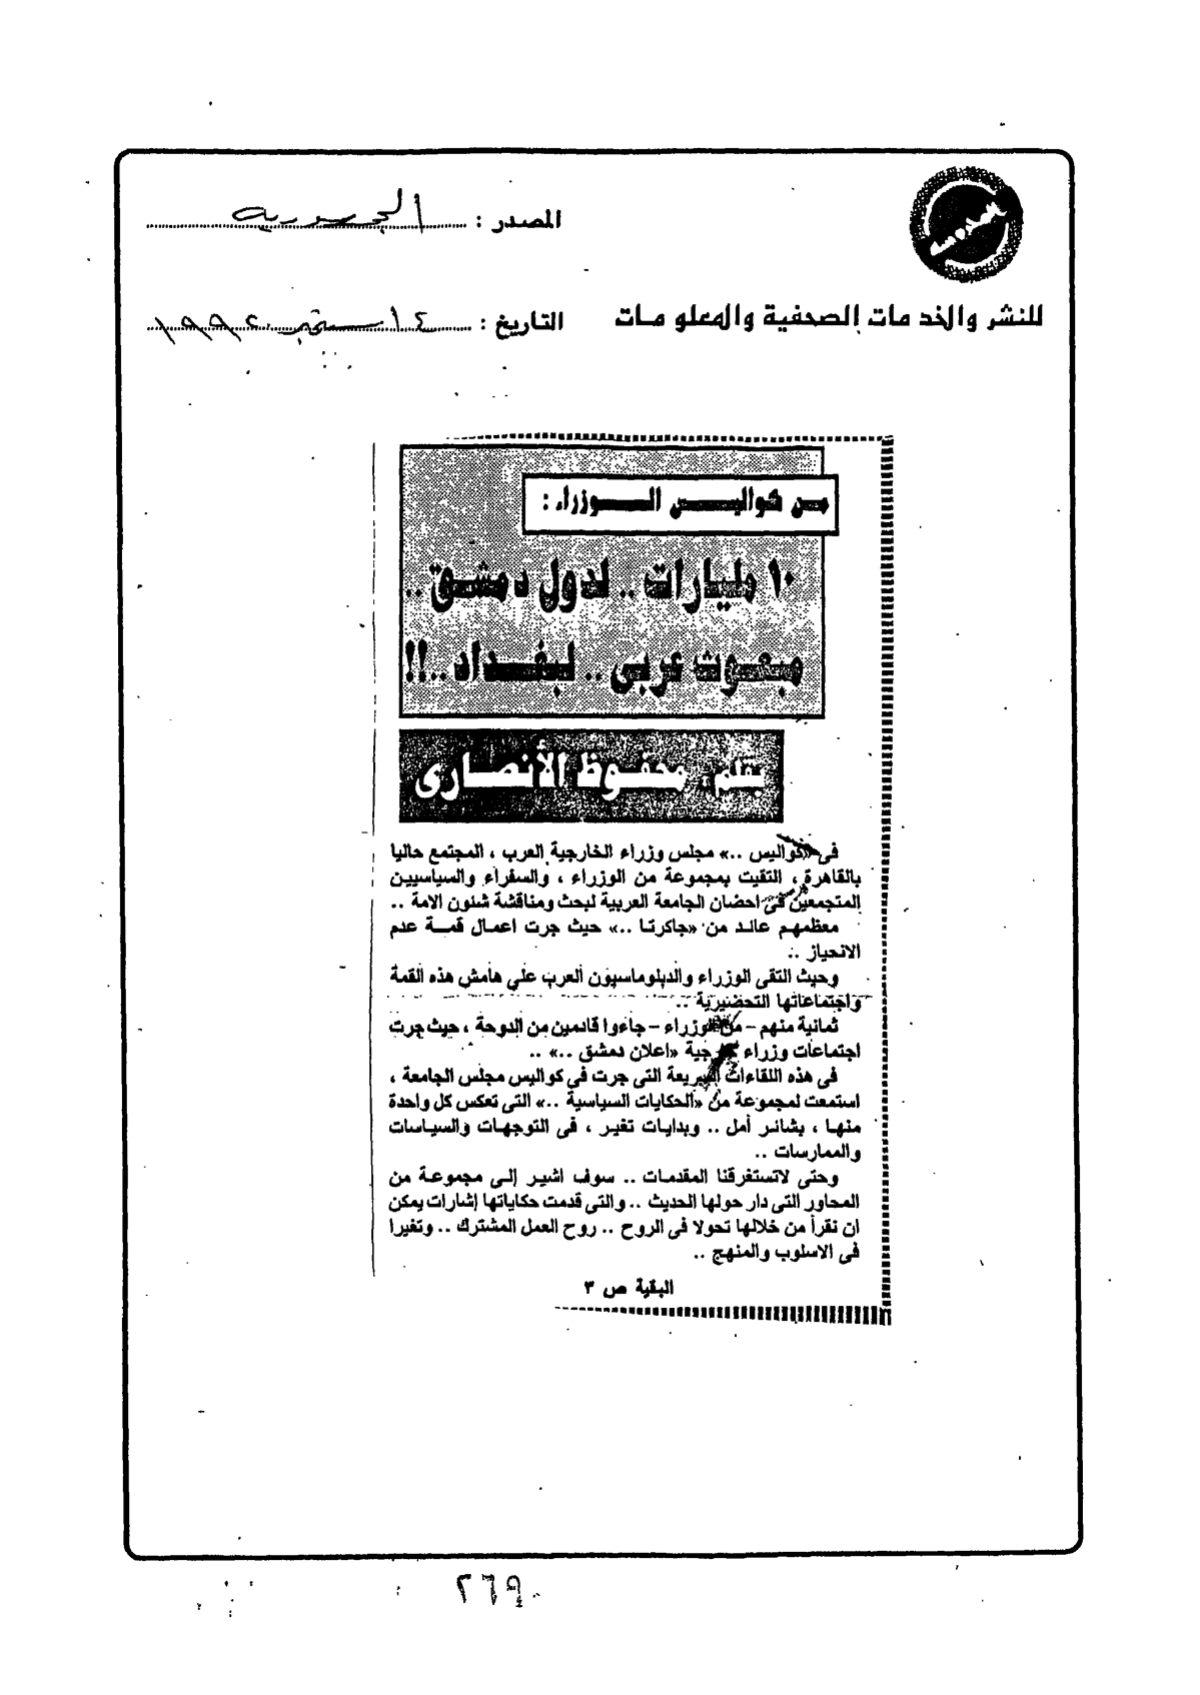 المصدر : الجمهورية
للنشر والخدمات الصحفية والمعلومات
التاريخ : ١٤ سبتمبر ١٩٩٢
من كواليس الوزراء :
١٠ مليارات .. لدول دمشق ..
مبعوث عربى .. لبغداد ..!!
بقلم: محفوظ الأنصارى
فى «كواليس ..» مجلس وزراء الخارجية العرب ، المجتمع حاليا
بالقاهرة ، التقيت بمجموعة من الوزراء ، والسفراء والسياسيين
المتجمعين فى احضان الجامعة العربية لبحث ومناقشة شئون الامة ..
معظمهم عائد من «جاكرتا ..» حيث جرت اعمال قمة عدم
الانحياز ..
وحيث التقى الوزراء والدبلوماسيون العرب على هامش هذه القمة
واجتماعاتها التحضيرية ..
ثمانية منهم - من الوزراء - جاءوا قادمين من الدوحة ، حيث جرت
اجتماعات وزراء خارجية «اعلان دمشق ..» ..
فى هذه اللقاءات السريعة التى جرت فى كواليس مجلس الجامعة ،
استمعت لمجموعة من «الحكايات السياسية ..» التى تعكس كل واحدة
منها ، بشائر أمل .. وبدايات تغير ، فى التوجهات والسياسات
والممارسات ..
وحتى لاتستغرقنا المقدمات .. سوف اشير إلى مجموعة من
المحاور التى دار حولها الحديث .. والتى قدمت حكاياتها إشارات يمكن
ان نقرأ من خلالها تحولا فى الروح .. روح العمل المشترك .. وتغيرا
فى الاسلوب والمنهج ..
البقية ص ٣
٢٦٩٠